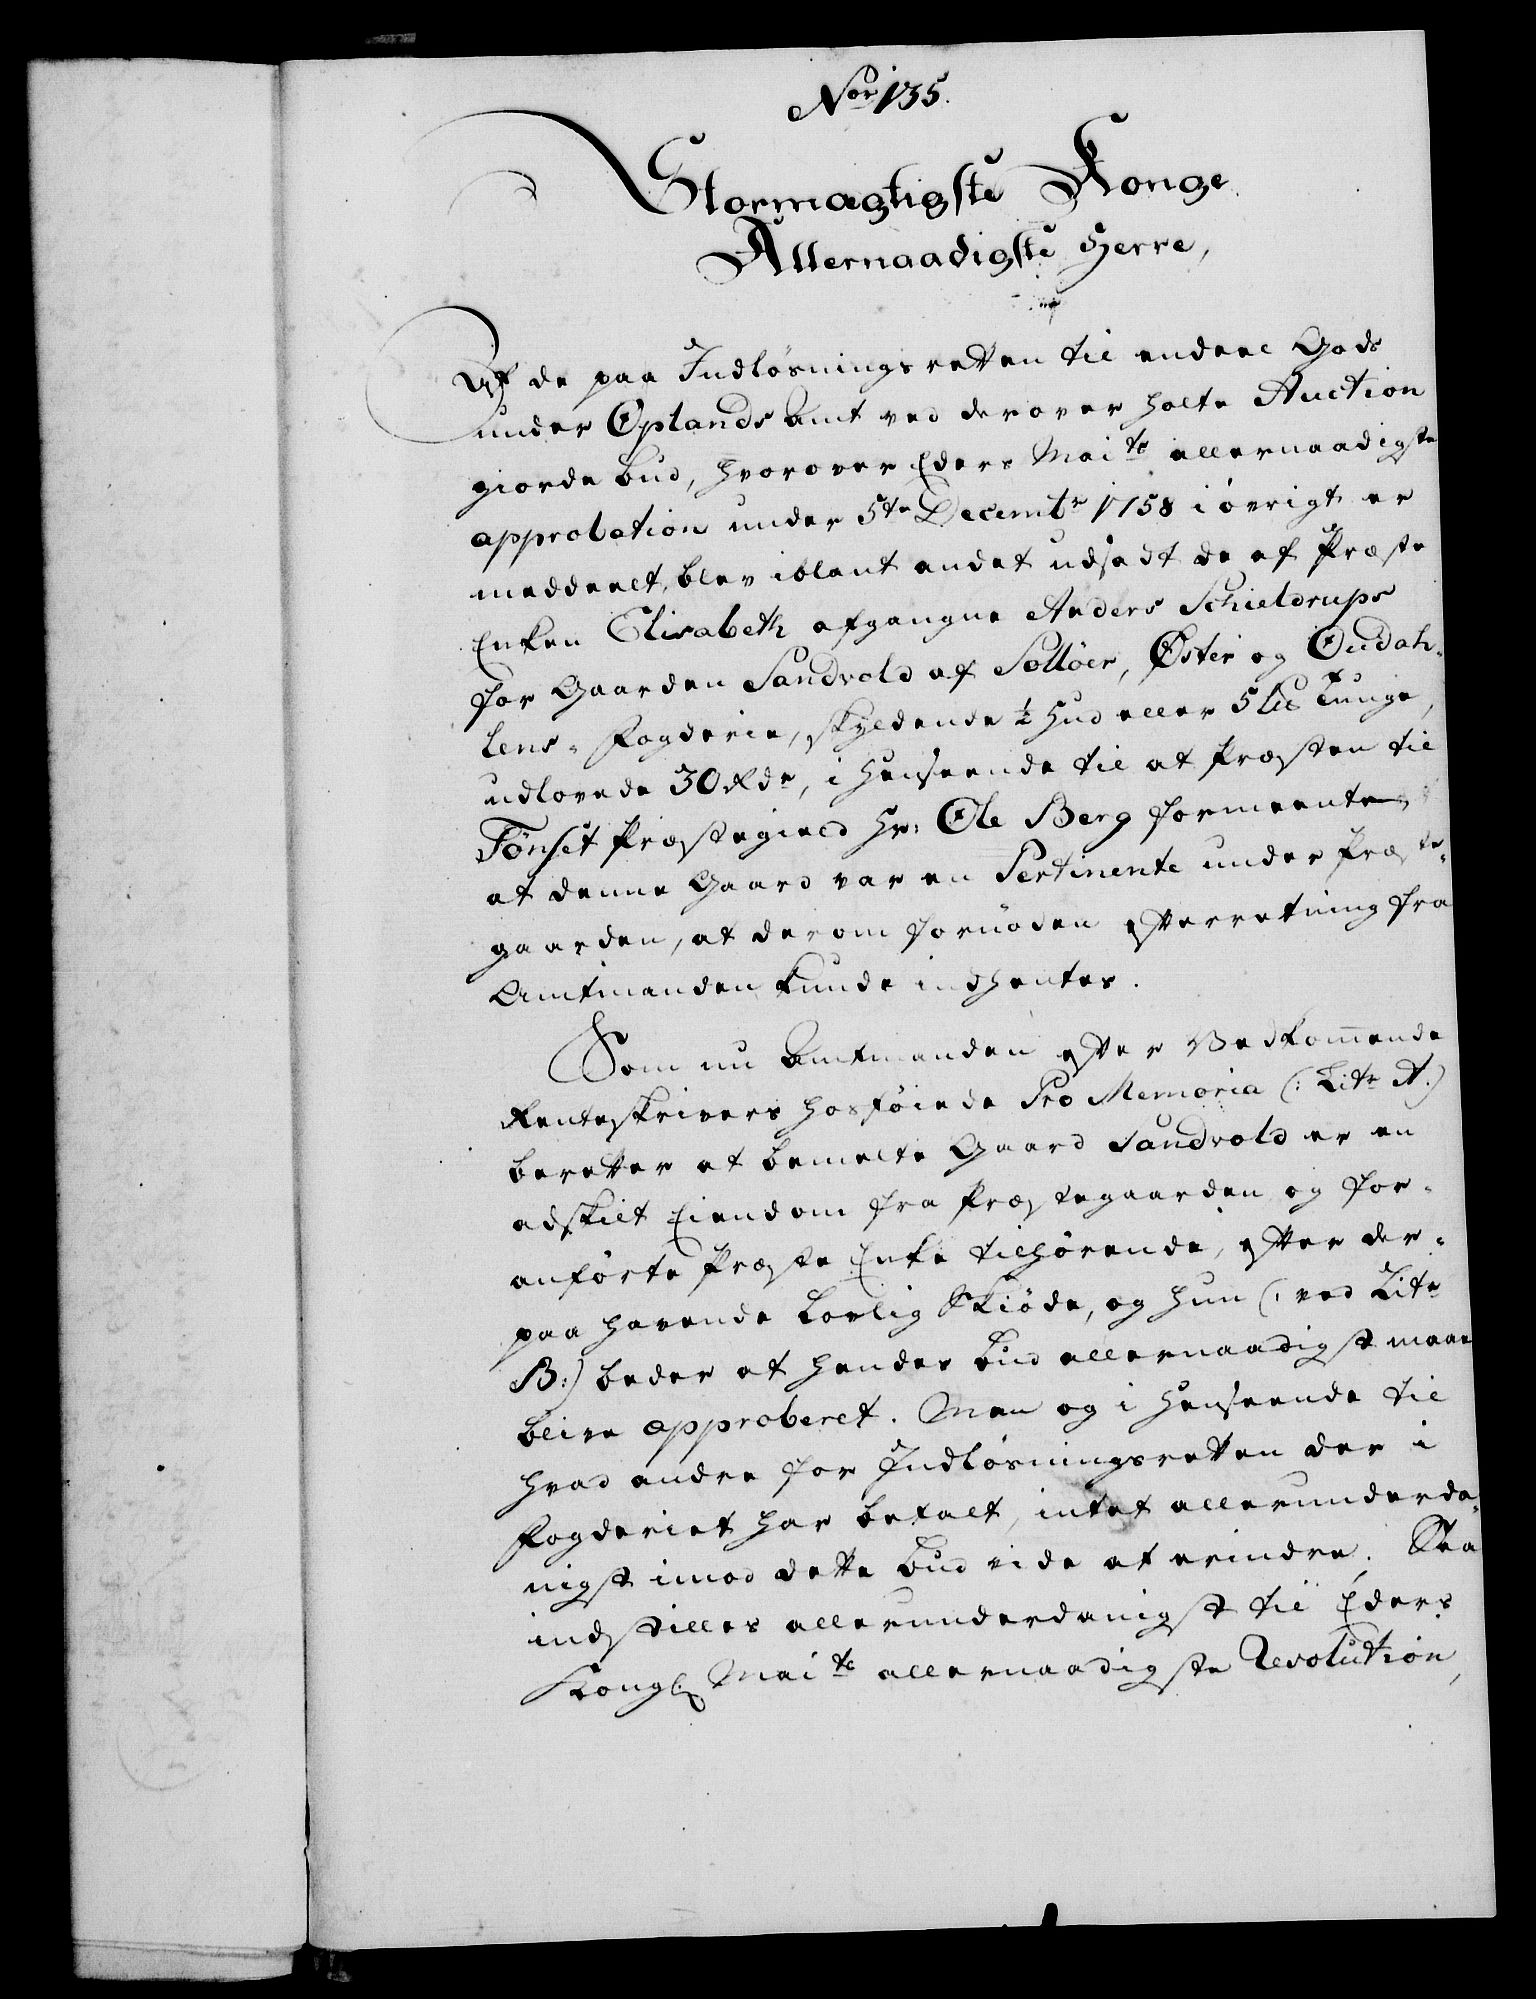 No: 135.
Stormægtigste Konge
Allernaadigste Herre,
Af de paa Indløsningsretten til endeel Gods
under Oplands Amt ved derover holte Auction
giorde bud, hvorover Eders Mai.te allernaadigste
approbation under 5te Decembr 1758 i øvrigt er
meddeelt, blev iblant andet udsadt de af Præste
Enken Elisabeth afgangne Anders Schieldrups
for Gaarden Sandvold af Solløer, Øster og Oudah-
lens-Fogderie, skyldende ½ Hud eller 5 lis Tunge,
udlovede 30 Rdr, i Henseende til at Præsten til
Tønset Præstegield Hr: Ole Berg formeente,
at denne Gaard var en Pertinente under Præste-
gaarden, at derom fornøden Efterretning fra
Amtmanden kunde indhentes.
Som nu Amtmanden efter Vedkommende
Renteskrivers hosføiede Pro Memoria (: Litr A:)
beretter at bemelte Gaard Sandvold er en
adskilt Eiendom fra Præstegaarden og for-
anførte Præste Enke tilhørende, efter der-
paa havende lovlig Skiøde, og hun (: ved Litr
B:) beder at hendes bud allernaadigst maae
blive approberet. Men og i Henseende til
hvad andre for Indløsningsretten der i
Fogderiet har betalt, intet allerunderda-
nigst imod dette bud vide at erindre. Saa
indstilles allerunderdanigst til Eders
Kongl Mai.te allernaadigste Resolution,